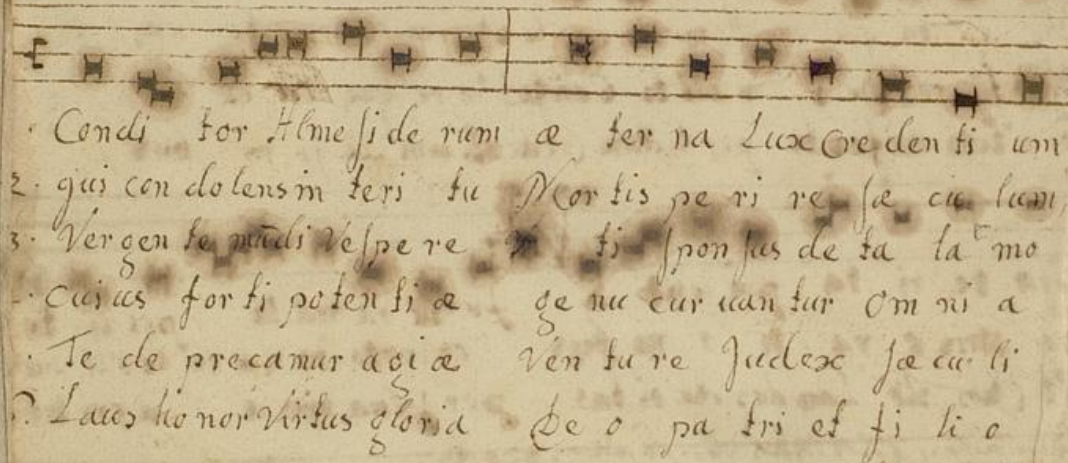 Condi tor Alme siderum æ ter na Lux Cre den ti um
2. qui con dolens in teri tu Mor tis pe ri re sæ cu lum
3. Vergen te mūdi Vespe re ti sponsus de ta la mo
cuius for ti poten ti æ ge nu cur uan tur om ni a
Te de precamur agiæ Ven tu re Judex sæ cu li
Laus honor Virtus gloria De o pa tri et fi li o